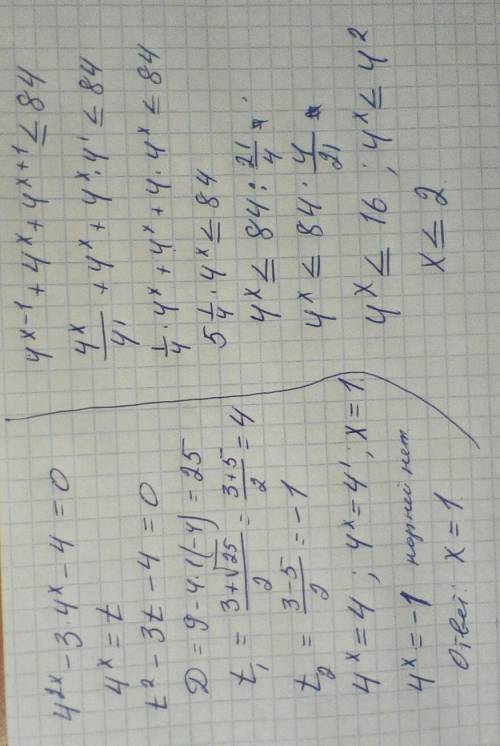 4^{2x} - 3·4^x - 4 = 0
4^x = t
t² - 3t - 4 = 0
D = 9 - 4·1(-4) = 25
t₁ = \frac{3+√25}{2} = \frac{3+5}{2} = 4
t₂ = \frac{3-5}{2} = -1
4^x = 4 ; 4^x = 4^1 ; x = 1
4^x = -1 корней нет
Ответ: x = 1.
4^{x-1} + 4^x + 4^{x+1} ≤ 84
\frac{4^x}{4^1} + 4^x + 4^x·4^1 ≤ 84
\frac{1}{4}·4^x + 4^x + 4·4^x ≤ 84
5\frac{1}{4}·4^x ≤ 84
4^x ≤ 84 : \frac{21}{4}
4^x ≤ 84 · \frac{4}{21}
4^x ≤ 16 ; 4^x ≤ 4²
x ≤ 2